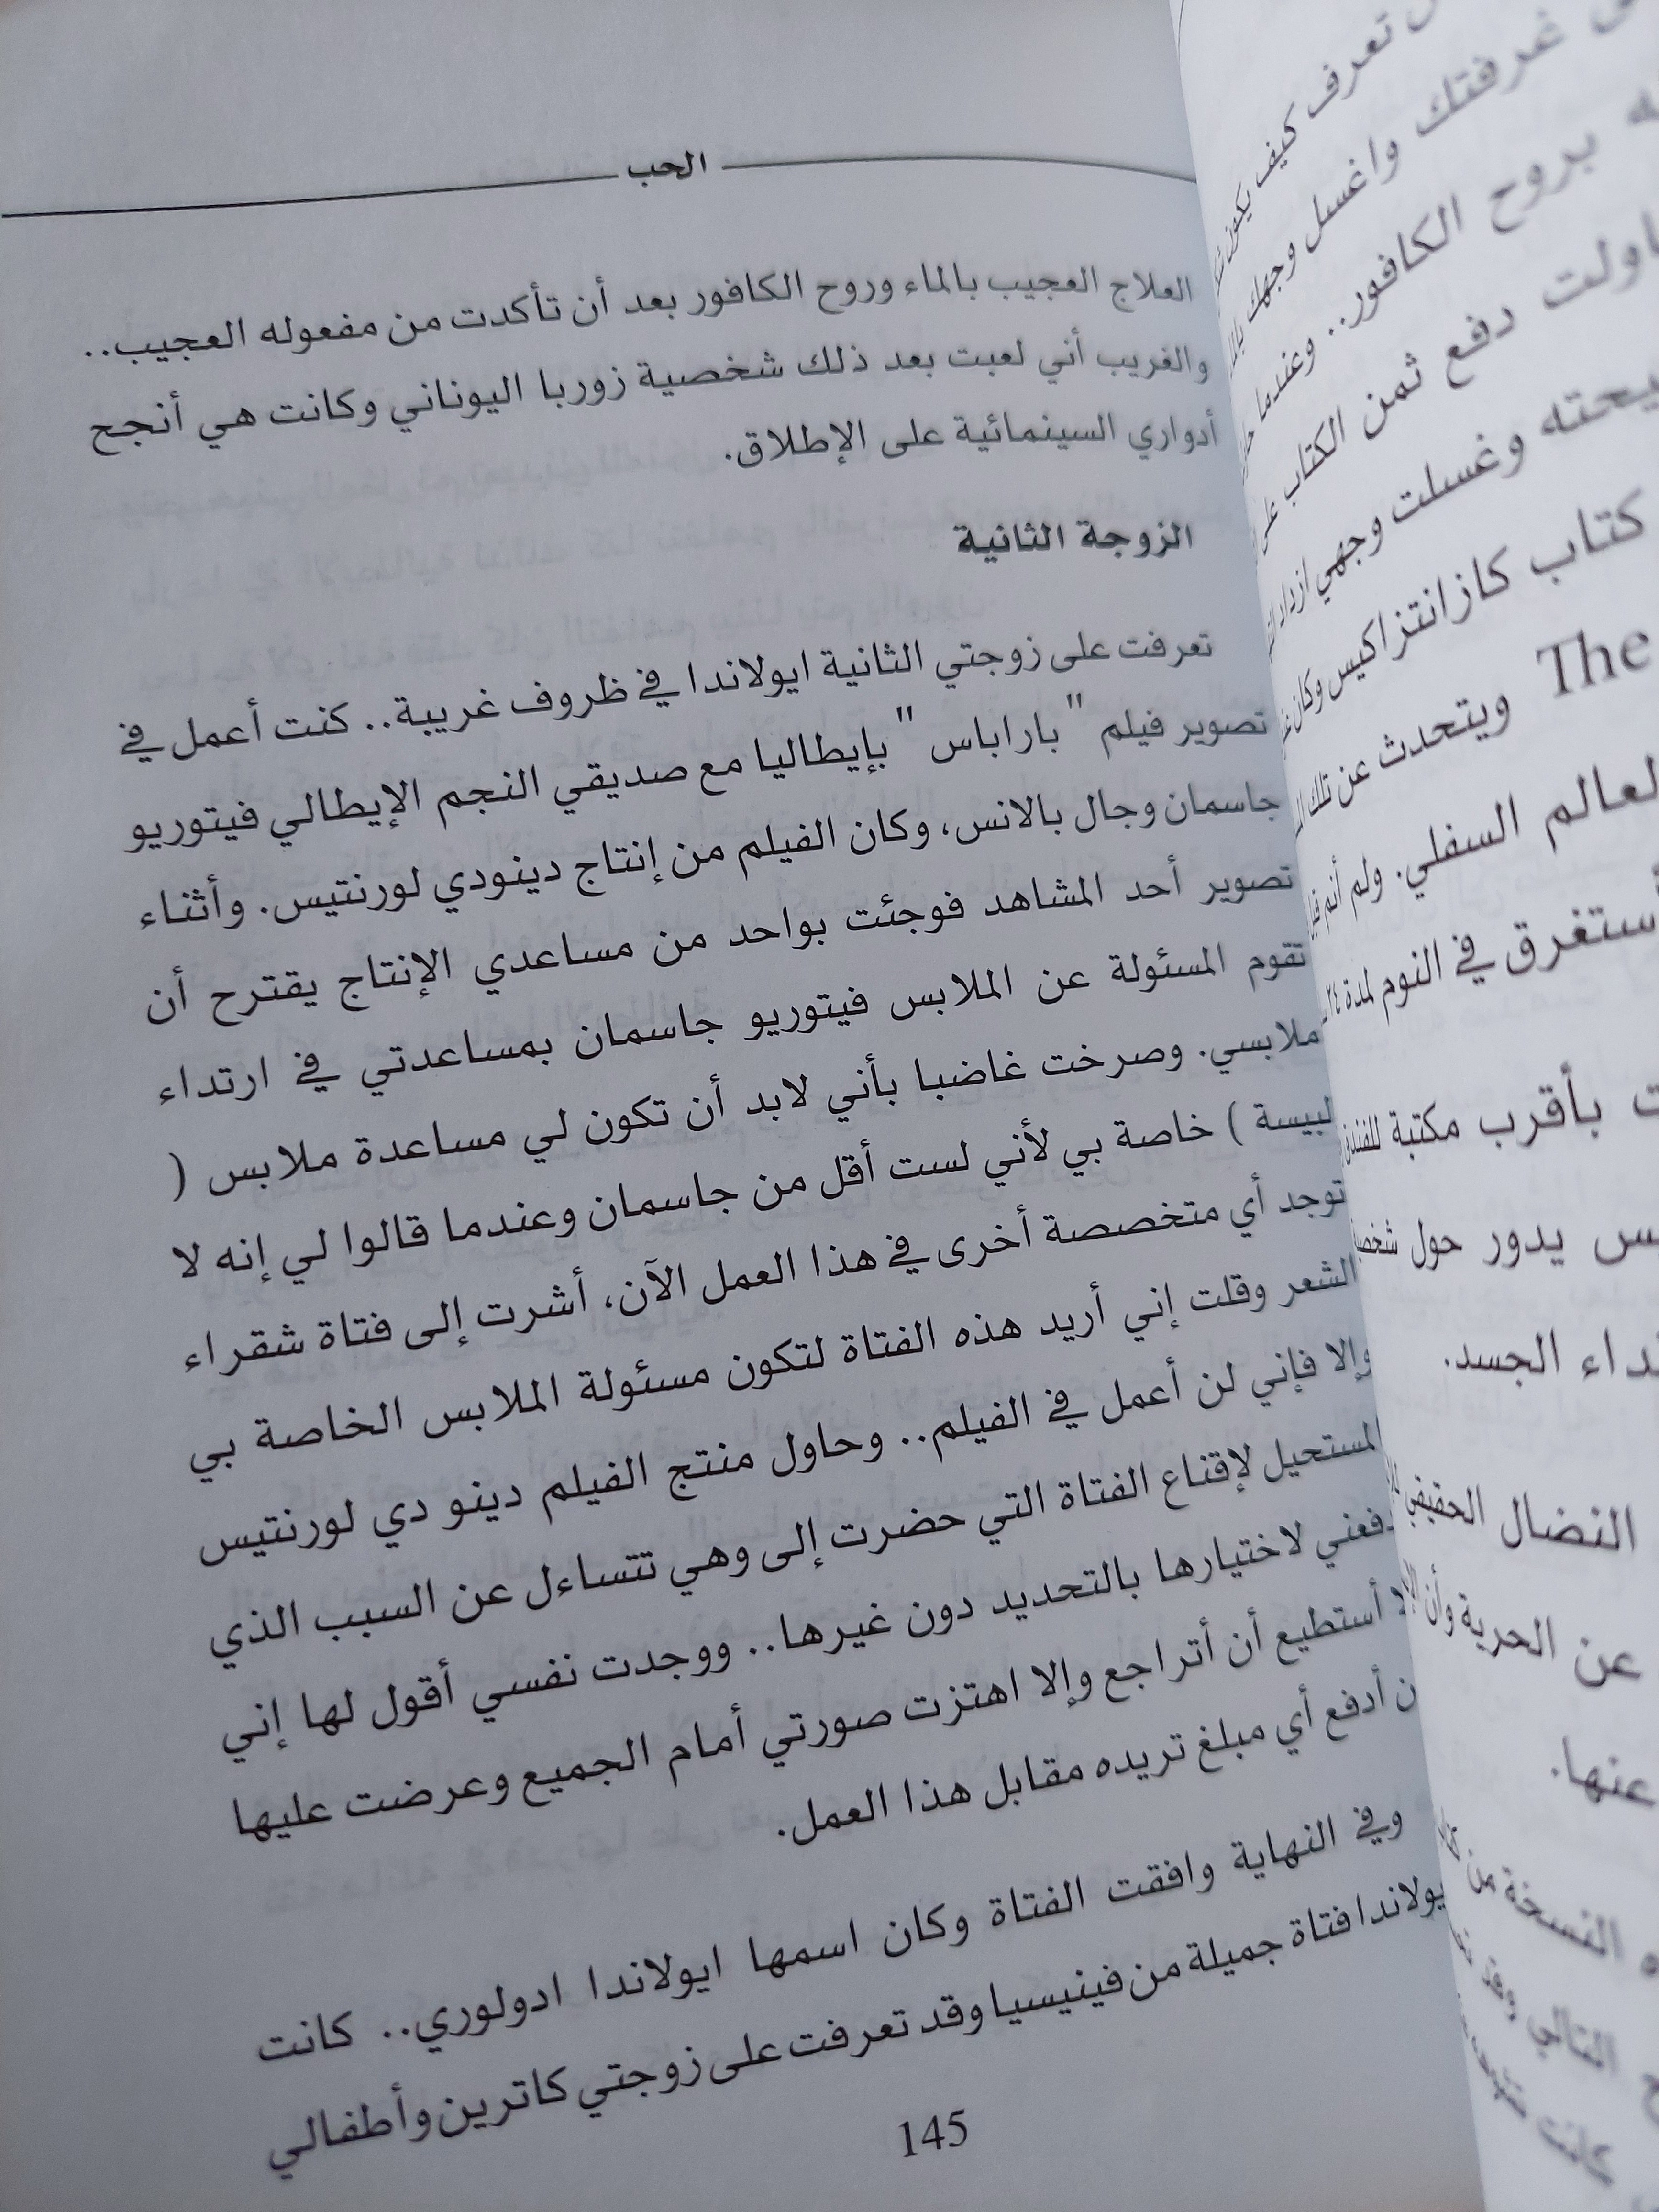 الحب
العلاج العجيب بالماء وروح الكافور بعد أن تأكدت من مفعوله العجيب..
والغريب أني لعبت بعد ذلك شخصية زوربا اليوناني وكانت هي أنجح
أدواري السينمائية على الإطلاق.
الزوجة الثانية
تعرفت على زوجتي الثانية ايولاندا في ظروف غريبة.. كنت أعمل في
تصوير فيلم " باراباس " بإيطاليا مع صديقي النجم الإيطالي فيتوريو
جاسمان وجال بالانس، وكان الفيلم من إنتاج دينودي لورنتيس. وأثناء
تصوير أحد المشاهد فوجئت بواحد من مساعدي الإنتاج يقترح أن
تقوم المسئولة عن الملابس فيتوريو جاسمان بمساعدتي في ارتداء
ملابسي. وصرخت غاضبا بأني لابد أن تكون لي مساعدة ملابس (
لبيسة ) خاصة بي لأني لست أقل من جاسمان وعندما قالوا لي إنه لا
توجد أي متخصصة أخرى في هذا العمل الآن، أشرت إلى فتاة شقراء
الشعر وقلت إني أريد هذه الفتاة لتكون مسئولة الملابس الخاصة بي
وإلا فإني لن أعمل في الفيلم.. وحاول منتج الفيلم دينو دي لورنتيس
المستحيل لإقناع الفتاة التي حضرت إلى وهي تتساءل عن السبب الذي
دفعني لاختيارها بالتحديد دون غيرها.. ووجدت نفسي أقول لها إني
لا أستطيع أن أتراجع وإلا اهتزت صورتي أمام الجميع وعرضت عليها
أن أدفع أي مبلغ تريده مقابل هذا العمل.
وفي النهاية وافقت الفتاة وكان اسمها ايولاندا ادولوري.. كانت
يولاندا فتاة جميلة من فينيسيا وقد تعرفت على زوجتي كاترين وأطفالي
145
تعرف كيف يكون
غرفتك واغسل وجهك
بروح الكافور.. وعندما
دفع ثمن الكتاب
وغسلت وجهي
كتاب كازانتزاكيس وكان
The ويتحدث عن تلك
العالم السفلي. ولم أنم
ستغرق في النوم لمدة ٢٤
بأقرب مكتبة للفندق
يدور حول
نداء الجسد.
النضال الحقيقي
عن الحرية وأن
عنها.
النسخة من
التالي
كانت